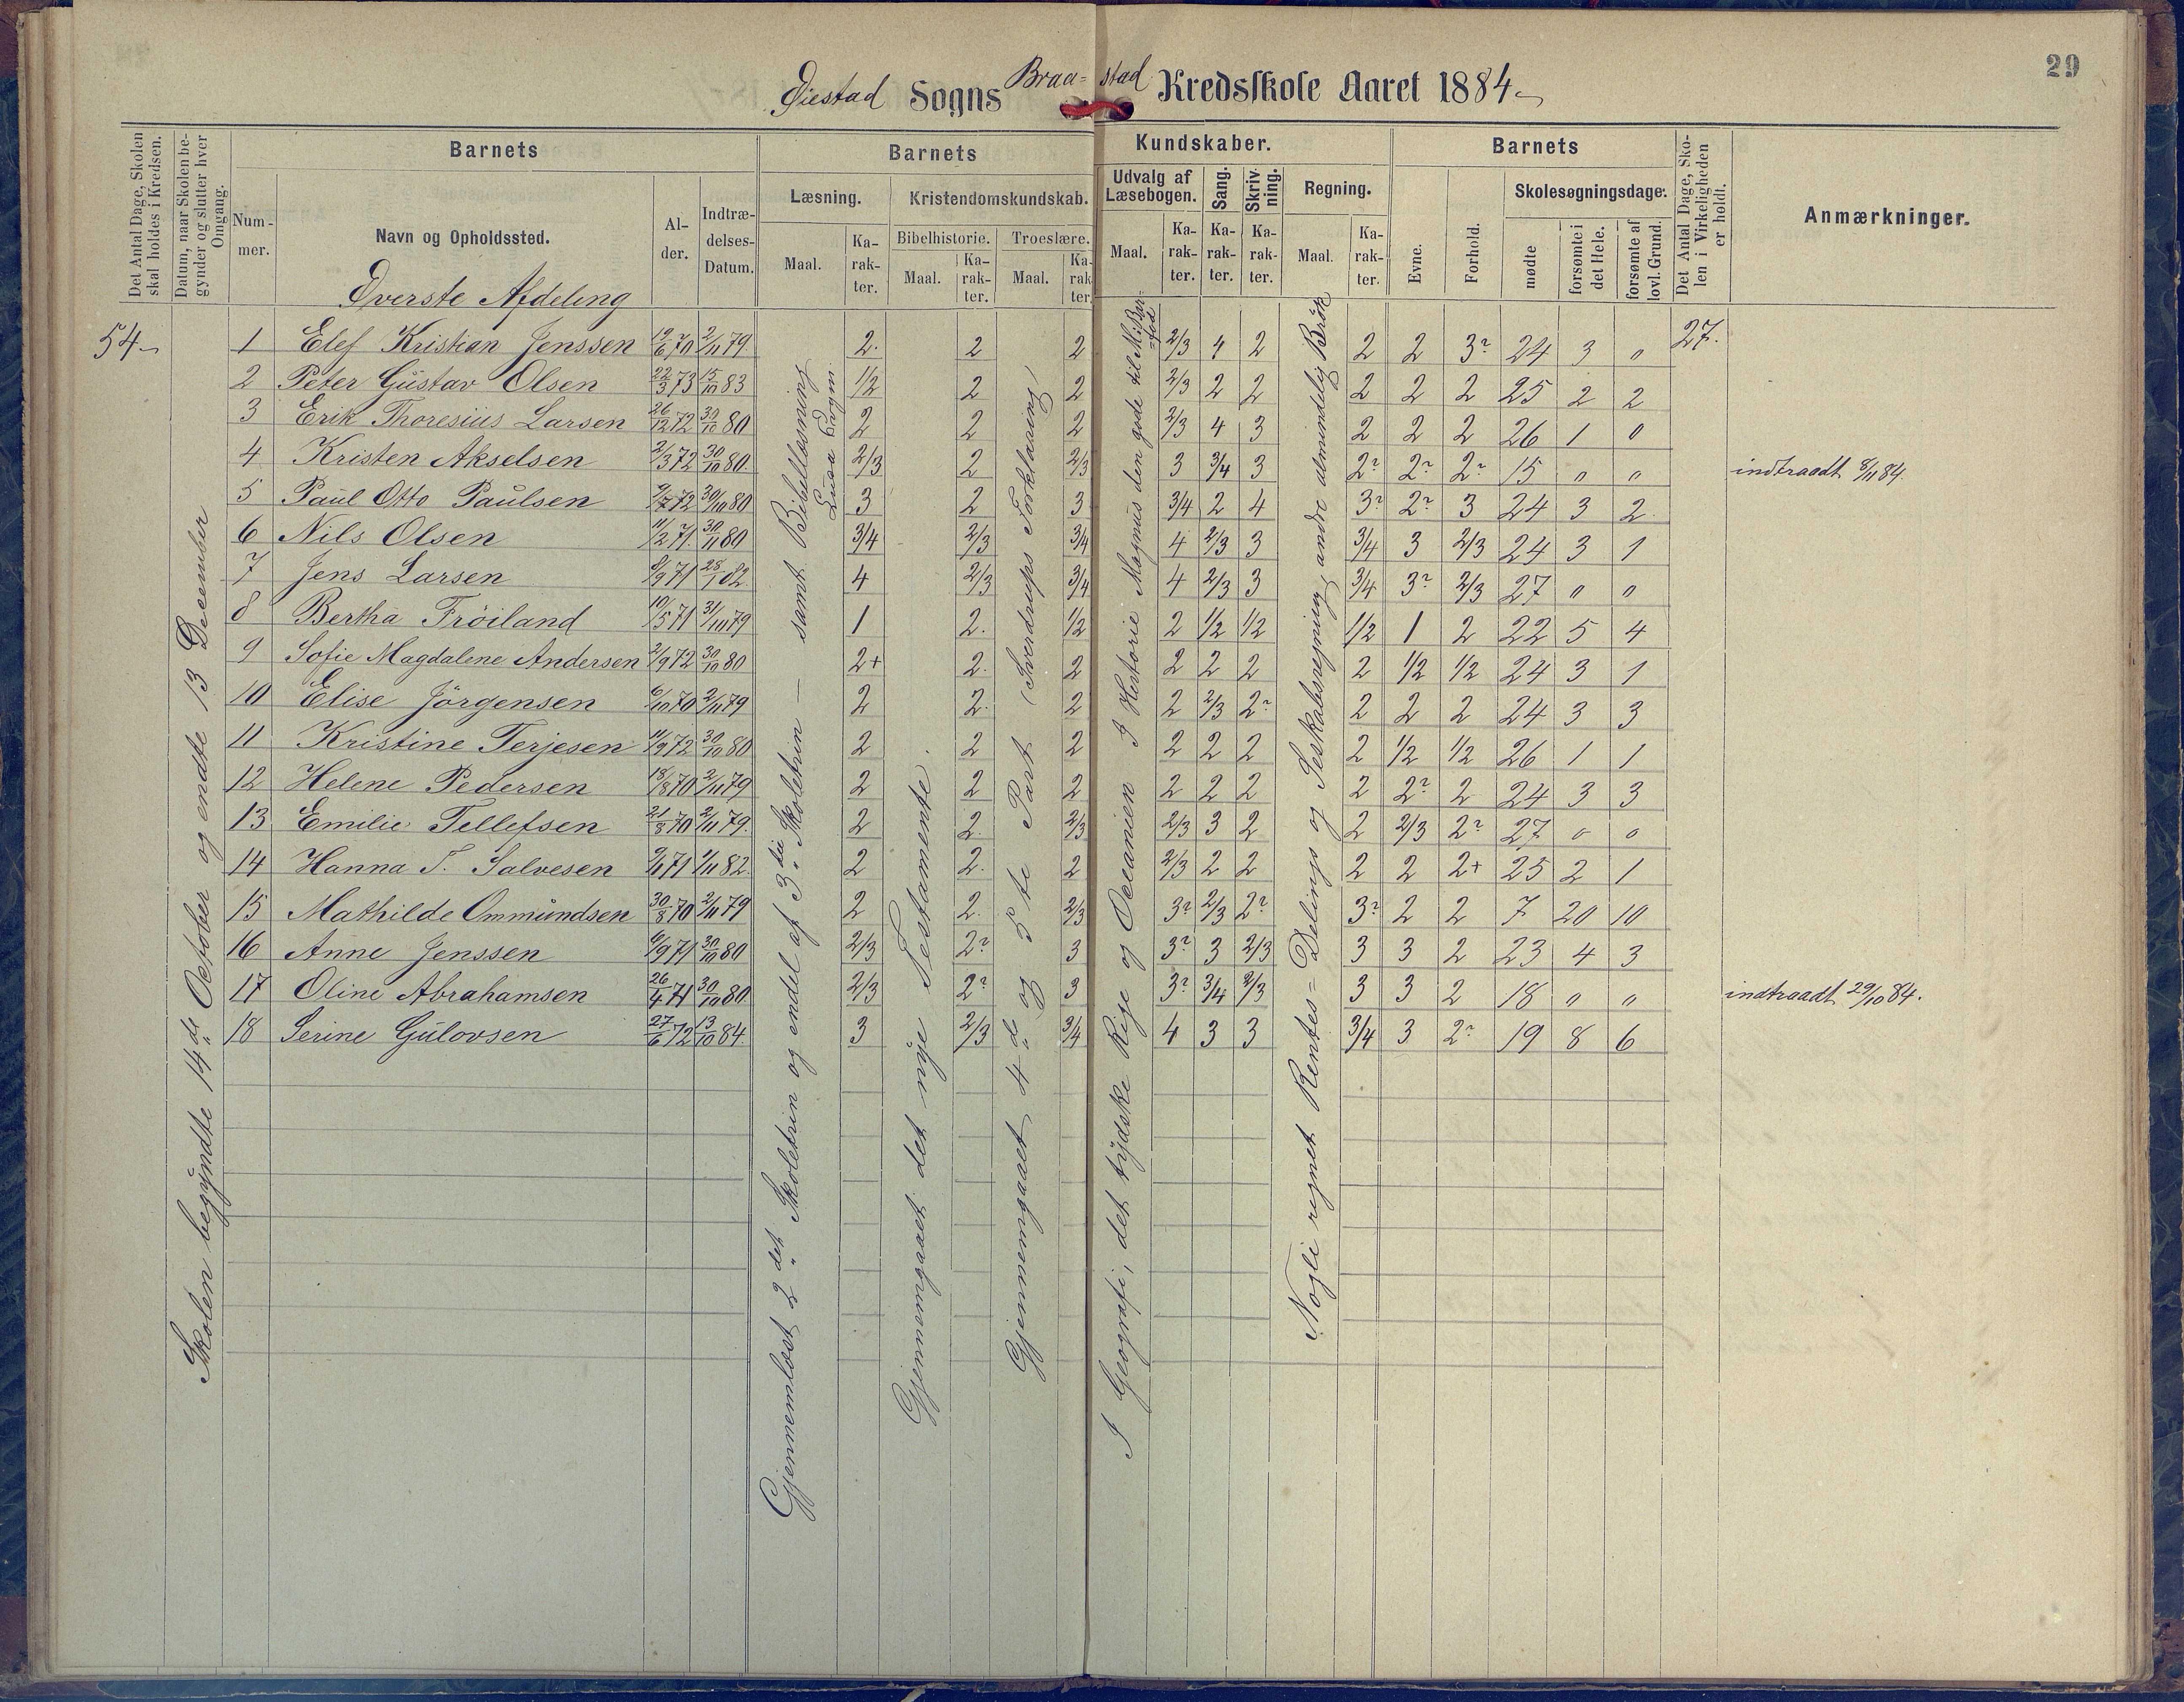 29
Øiestad Sogns Braa=stad Kredsskole Aaret 1884
Det Antal Dage, Skolen skal holdes i Kredsen.
Datum, naar Skolen begynder og slutter hver Omgang.
Barnets
Nummer.
Navn og Opholdssted.
Alder.
Indtrædelses-Datum.
Barnets Kundskaber.
Læsning.
Maal.
Karakter.
Kristendomskundskab.
Bibelhistorie.
Maal.
Karakter.
Troeslære.
Maal.
Karakter.
Udvalg af Læsebogen.
Maal.
Karakter.
Sang.
Karakter.
Skrivning.
Karakter.
Regning.
Maal.
Karakter.
Barnets
Evne.
Forhold.
Skolesøgningsdage.
mødte
forsømte i det Hele.
forsømte af lovl. Grund.
Det Antal Dage, Skolen i Virkeligheden er holdt.
Anmærkninger.
Øverste Afdeling
54
27.
1 Elef Kristian Jenssen 19/6 70 2/11 79 2 2 2 2/3 4 2 2 2 3? 24 3 0
2 Peter Gustav Olsen 22/3 73 15/10 83 1/2 2 2 2/3 2 2 2 2 2 25 2 2
3 Erik Thoresius Larsen 26/12 72 30/10 80 2 2 2 2/3 4 3 2 2 2 26 1 0
4 Kristen Akselsen 2/3 72 30/10 80 2/3 2 2/3 3 3/4 3 2? 2? 2? 15 " " indtraadt 8/11 84.
5 Paul Otto Paulsen 9/7 72 30/10 80 3 2 3 3/4 2 4 3? 2? 3 24 3 2
6 Nils Olsen 11/2 71 30/11 80 3/4 2/3 3/4 4 2/3 3 3/4 3 2/3 24 3 1
7 Jens Larsen 8/9 71 28/10 82 4 2/3 3/4 4 2/3 3 3/4 3? 2/3 27 " "
8 Bertha Frøiland 10/5 71 31/10 79 1 2. 1/2 2 1/2 1/2 1/2 1 2 22 5 4
9 Sofie Magdalene Andersen 2/9 72 30/10 80 2+ 2. 2 2 2 2 2 1/2 1/2 24 3 1
10 Elise Jörgensen 6/10 70 2/11 79 2 2. 2 2 2/3 2? 2 2 2 24 3 3
11 Kristine Terjesen 11/9 72 30/10 80 2 2 2 2 2 2 2 1/2 1/2 26 1 1
12 Helene Pedersen 18/8 70 2/11 79 2 2 2 2 2 2 2 2? 2 24 3 3
13 Emilie Tellefsen 21/8 70 2/11 79. 2 2. 2/3 2/3 3 2 2 2/3 2? 27 0 0
14 Hanna T. Salvesen 9/11 71 1/11 82. 2 2. 2 2/3 2 2 2 2 2+ 25 2 1
15 Mathilde Ommundsen 30/8 70 2/11 79 2 2. 2/3 3? 2/3 2? 3? 2 2 7 20 10
16 Anne Jenssen 6/9 71 30/10 80 2/3 2? 3 3? 3 2/3 3 3 2 23 4 3
17 Oline Abrahamsen 26/4 71 30/10 80 2/3 2? 3 3? 3/4 2/3 3 3 2 18 " " indtraadt 29/10 84.
18 Serine Gulovsen 27/6 72 13/10 84. 3 2/3 3/4 4 3 3 3/4 3 2? 19 8 6
Skolen begyndte 14de October og endte 13 December
Gjennemlæst 2det Skoletrin og endel af 3die Skoletrin — samt Bibellæsning
Gjennemgaaet det nye Testamente.
Gjennemgaaet 4de og 5te Part (Sverdrups Forklaaring)
I Geografi, det tydske Rige og Oceanien I Historie Magnus den gode til M. Barfod
Nogle regnet Rentes= Delings og Seskabsregning, andre almindelig Brök